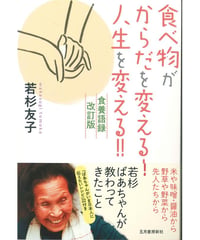 食べ物が
からだを変える!
人生を変える!!
食養語録
改訂版
若杉友子
米や味噌・醤油から
野草や野菜から
先人たちから
若杉
ばあちゃんが
教わって
きたこと
五月書房新社